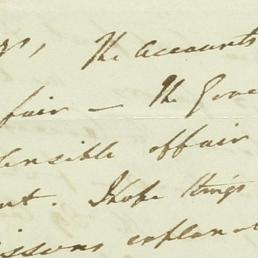 The Accounts
fair — The Gove
ensible affair
nt. I hope things
issons explana